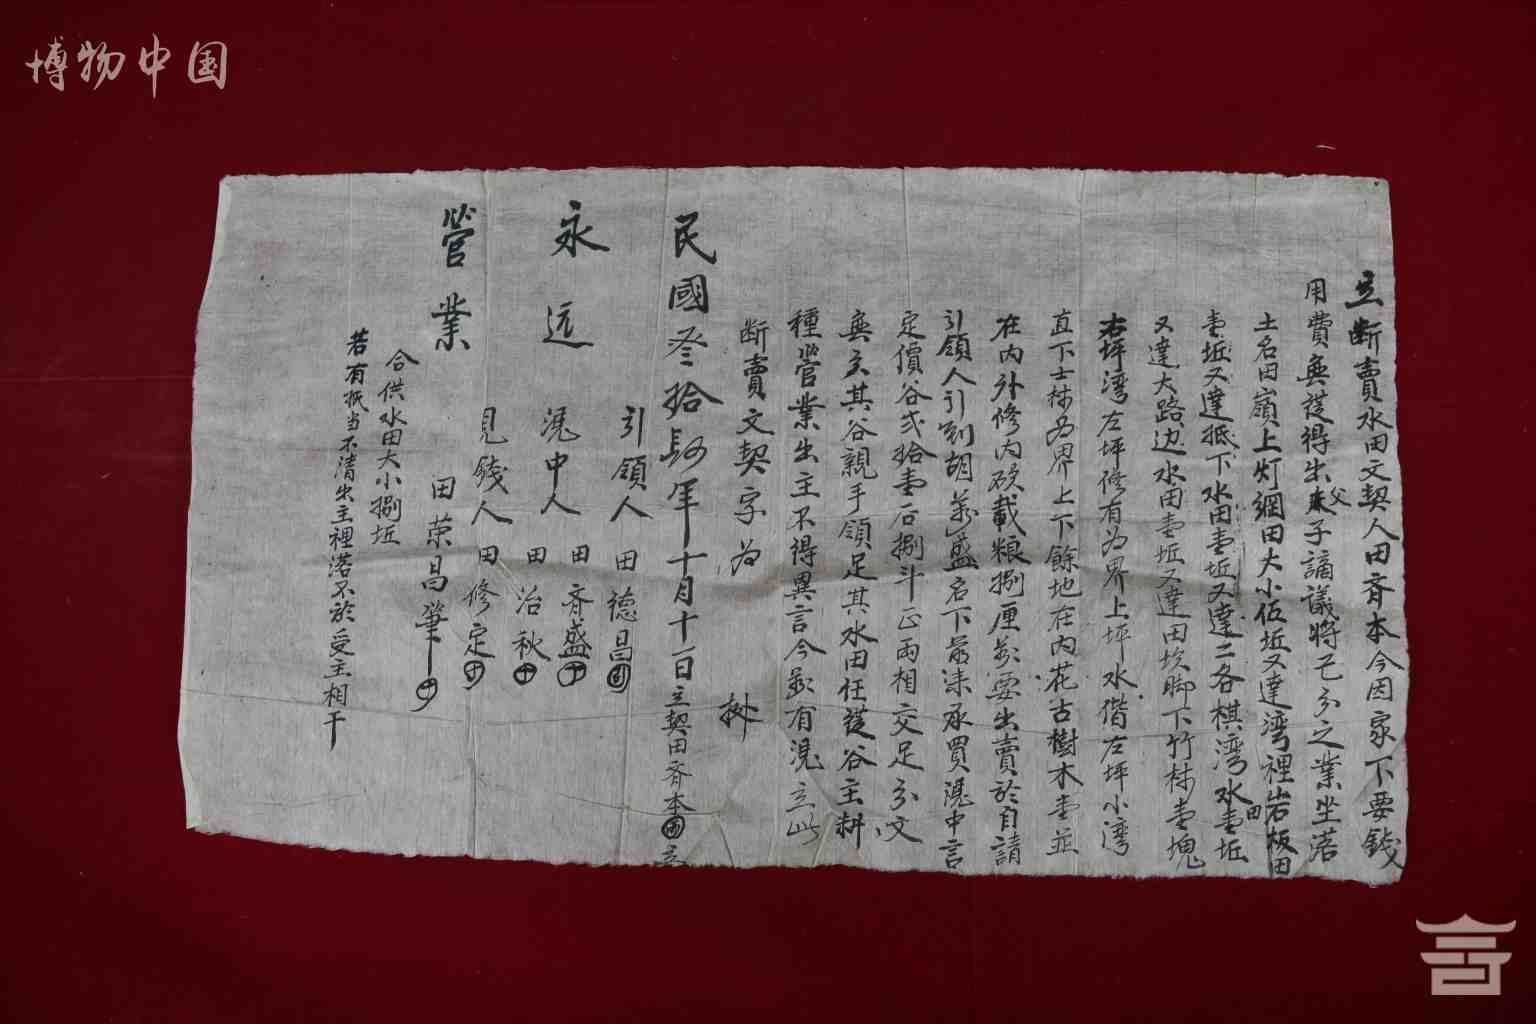 博物中国
立断賣水田文契人田斉本今因家下要錢
用費無從得出父子謫議將己分之業坐落
土名田嶺上灯綱田大小伍坵又達湾裡岩板田
壹坵又達抵下水田壹坵又達二各棋湾水田壹坵
又達大路边水田壹坵又達田坎脚下竹林壹塊
右坪湾左坪修有為界上坪水偕左坪小湾
直下士林為界上下餘地在内花古樹木壹並
在内外修内砍載粮捌厘要出賣於自請
引領人引到胡萬盛名下承買凴中言
定價谷弍拾壹石捌斗正両相交足分文
無欠其谷親手領足其水田任從谷主耕
種營業出主不得異言今有凴立此
断賣文契字為
民國叁拾年十月十一日立契田斉本
引領人 田德昌
凴中人 田斉盛
田治秋
見錢人 田修定
田荣昌筆
永远
營業
合供水田大小捌坵
若有抵当不清出主裡落不於受主相干